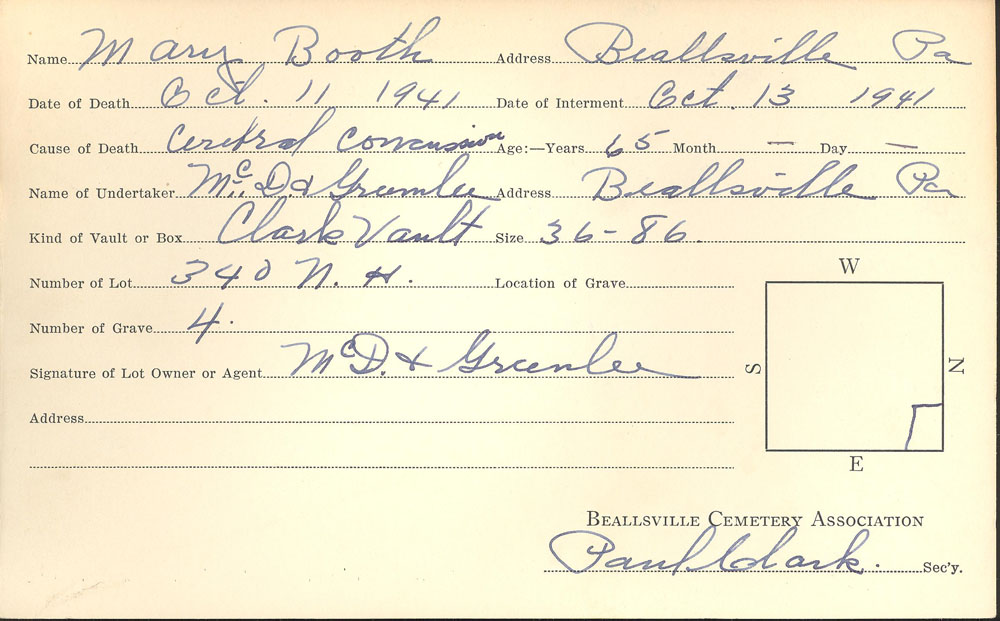 Name Mary Booth Address Beallsville Pa
Date of Death Oct. 11 1941 Date of Interment Oct. 13 1941
Cause of Death Cerebral Concussion Age:—Years 65 Month — Day —
Name of Undertaker McD. & Greenlee Address Beallsville Pa
Kind of Vault or Box Clark Vault Size 36-86.
Number of Lot 340 N. H. Location of Grave
W
Number of Grave 4.
Signature of Lot Owner or Agent McD. & Greenlee
S N
Address
E
BEALLSVILLE CEMETERY ASSOCIATION
Paul Clark. Sec'y.